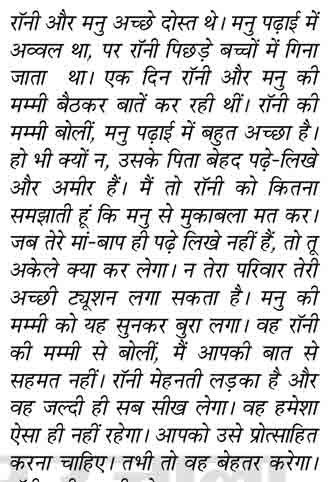 रॉनी और मनु अच्छे दोस्त थे। मनु पढ़ाई में
अव्वल था, पर रॉनी पिछड़े बच्चों में गिना
जाता था। एक दिन रॉनी और मनु की
मम्मी बैठकर बातें कर रही थीं। रॉनी की
मम्मी बोलीं, मनु पढ़ाई में बहुत अच्छा है।
हो भी क्यों न, उसके पिता बेहद पढ़े-लिखे
और अमीर हैं। मैं तो रॉनी को कितना
समझाती हूं कि मनु से मुकाबला मत कर।
जब तेरे मां-बाप ही पढ़े लिखे नहीं हैं, तो तू
अकेले क्या कर लेगा। न तेरा परिवार तेरी
अच्छी ट्यूशन लगा सकता है। मनु की
मम्मी को यह सुनकर बुरा लगा। वह रॉनी
की मम्मी से बोलीं, मैं आपकी बात से
सहमत नहीं। रॉनी मेहनती लड़का है और
वह जल्दी ही सब सीख लेगा। वह हमेशा
ऐसा ही नहीं रहेगा। आपको उसे प्रोत्साहित
करना चाहिए। तभी तो वह बेहतर करेगा।